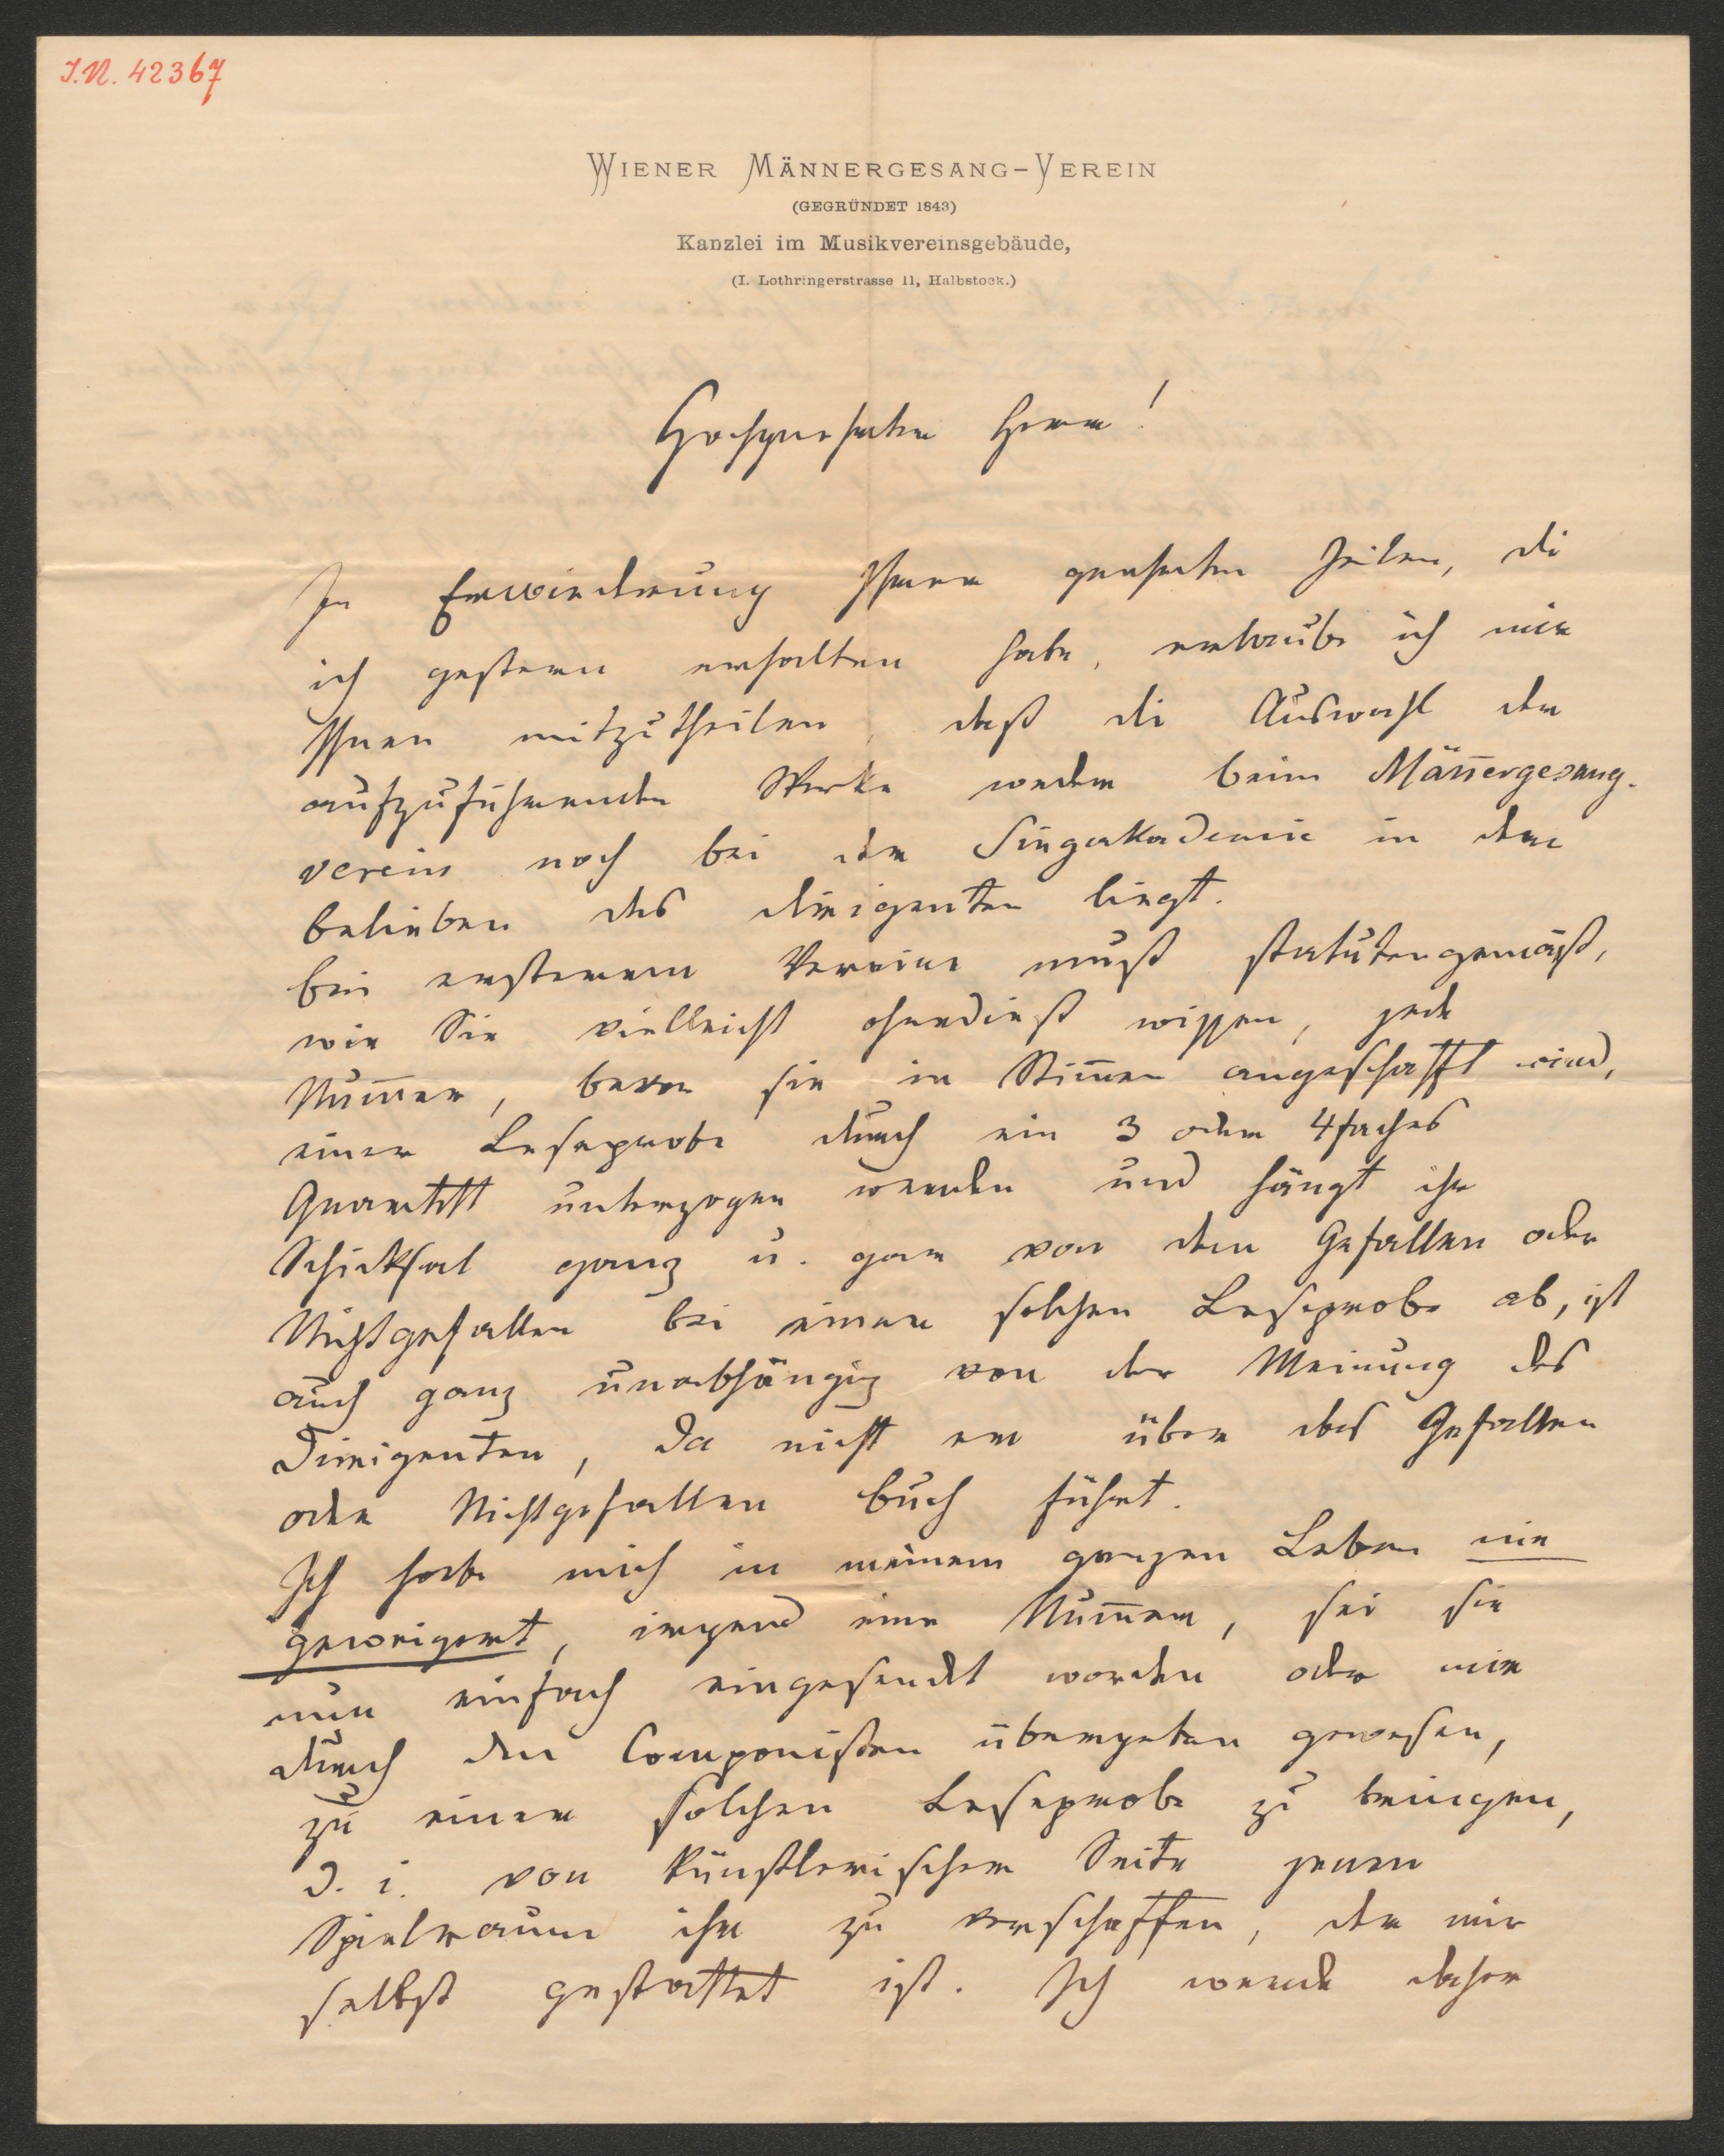 I.N. 42367
WIENER MÄNNERGESANG-VEREIN
(GEGRÜNDET 1843)
Kanzlei im Musikvereinsgebäude,
(I. Lothringerstrasse 11, Halbstock.)
Hochgeehrter Herr!
In Erwiederung Ihrer geehrten Zeilen, die
ich gestern erhalten habe, erlaube ich mir
Ihnen mitzutheilen, daß die Auswahl der
aufzuführenden Werke weder beim Männergesang-
verein noch bei der Singakademie in dem
belieben des dirigenten liegt.
bei ersterem Vereine muß statutengemäß,
wie Sie vielleicht ohnedieß wissen, jede
Num̄er, bevor sie in Stim̄en angeschafft wird,
einer Leseprobe durch ein 3 oder 4faches
Quartett unterzogen werden und hängt ihr
Schicksal ganz u. gar von dem Gefallen oder
Nichtgefallen bei einer solchen Leseprobe ab, ist
auch ganz unabhängig von der Meinung des
Dirigenten, da nicht er über das Gefallen
oder Nichtgefallen buch führt.
Ich habe mich in meinem ganzen Leben nie
geweigert, irgend eine Num̄er, sei sie
nun einfach eingesendet worden oder mir
durch den Componisten übergeben gewesen,
zu einer solchen Leseprobe zu bringen,
d. i. von künstlerischer Seite jenen
Spielraum ihr zu verschaffen, der mir
selbst gestattet ist. Ich werde daher